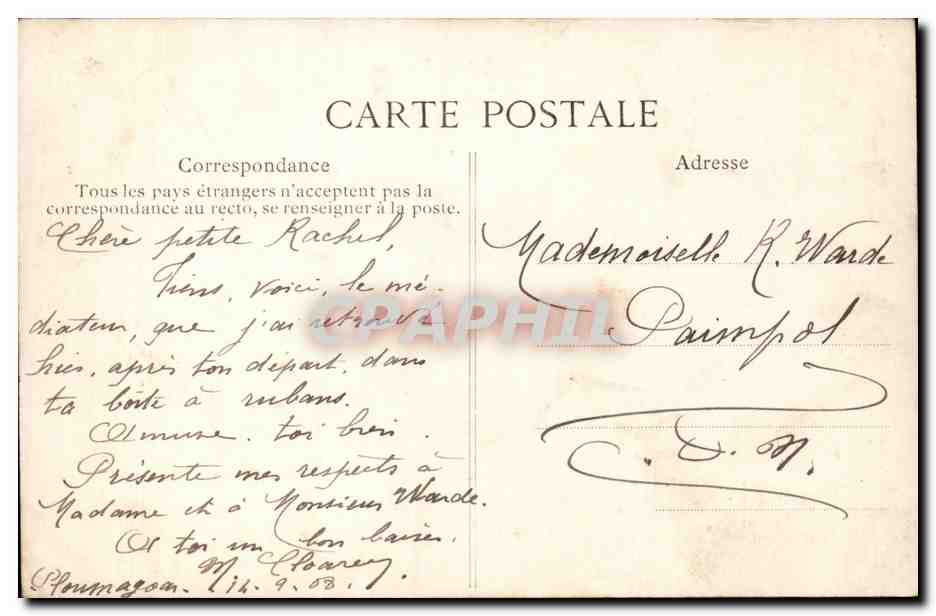 CARTE POSTALE
Correspondance
Tous les pays étrangers n'acceptent pas la
correspondance au recto, se renseigner à la poste.
Chère petite Rachel,
Tiens, voici, le mé-
diateur, que j'ai retrouvé
hier, après ton départ, dans
ta boîte à rubans.
Amuse-toi bien.
Présente mes respects à
Madame et à Monsieur Warde.
A toi un bon baiser.
Ploumagoar. 14.9.08.
Adresse
Mademoiselle R. Warde
Paimpol
C. D. N.
CPAPHIL